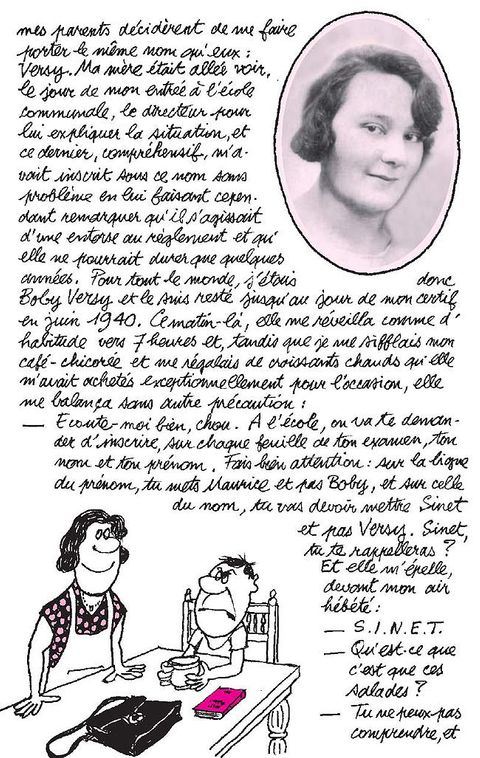 mes parents décidèrent de me faire
porter le même nom qu'eux :
Versy. Ma mère était allée voir,
le jour de mon entrée à l'école
communale, le directeur pour
lui expliquer la situation, et
ce dernier, compréhensif, m'a-
vait inscrit sous ce nom sans
problème en lui faisant cepen-
dant remarquer qu'il s'agissait
d'une entorse au règlement et qu'
elle ne pourrait durer que quelques
années. Pour tout le monde, j'étais donc
Boby Versy et le suis resté jusqu'au jour de mon certif,
en juin 1940. Ce matin-là, elle me réveilla comme d'
habitude vers 7 heures et, tandis que je me sifflais mon
café-chicorée et me régalais de croissants chauds qu'elle
m'avait achetés exceptionnellement pour l'occasion, elle
me balança sans autre précaution :
— Ecoute-moi bien, chou. A l'école, on va te deman-
der d'inscrire, sur chaque feuille de ton examen, ton
nom et ton prénom. Fais bien attention : sur la ligne
du prénom, tu mets Maurice et pas Boby, et sur celle
du nom, tu vas devoir mettre Sinet
et pas Versy. Sinet,
tu te rappelleras ?
Et elle m'épelle,
devant mon air
hébété :
— S.I.N.E.T.
— Qu'est-ce que
c'est que ces
salades ?
— Tu ne peux pas
comprendre, et